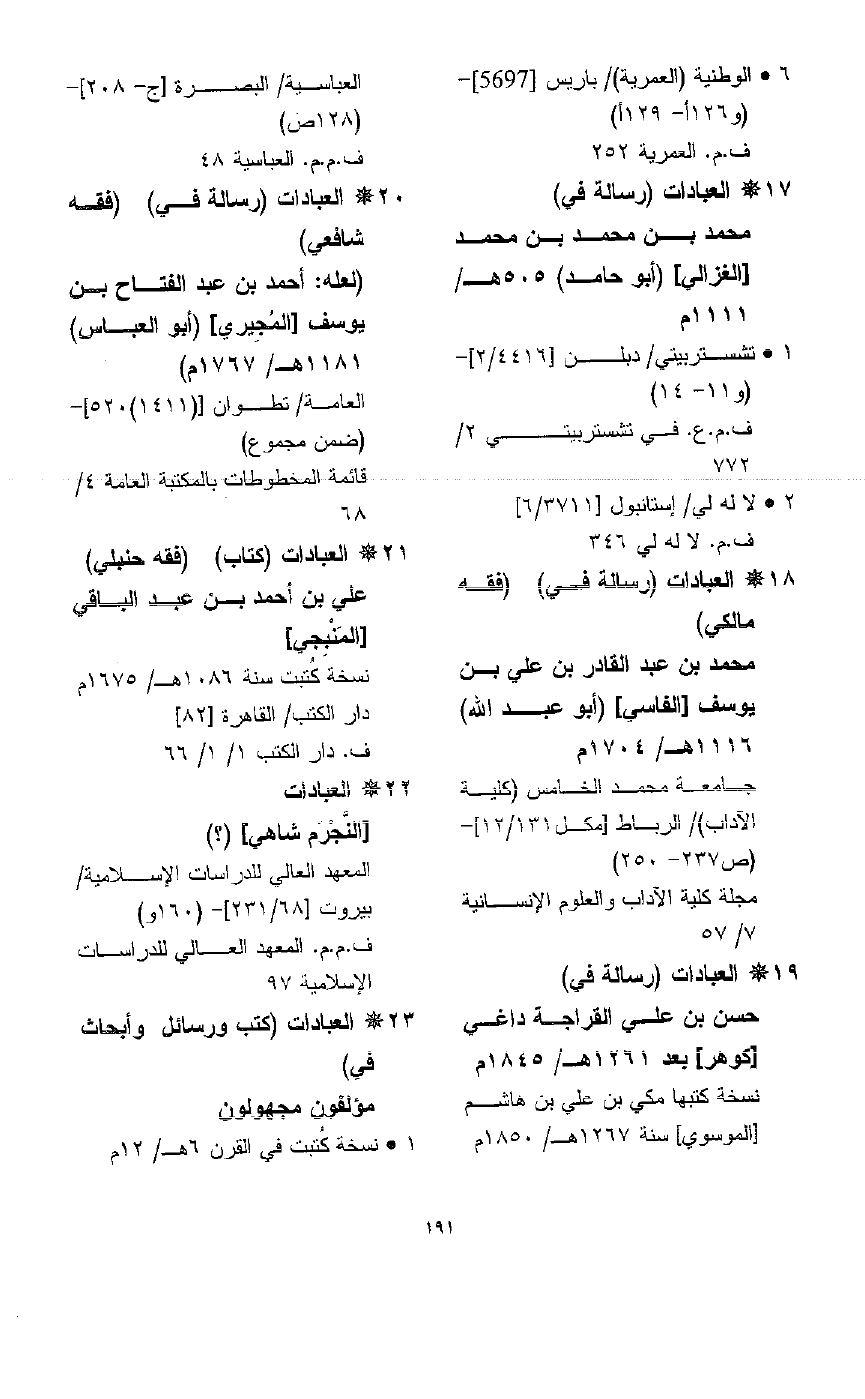 ٦ • الوطنية (العمرية)/ باريس [5697]-
(و١٢٦أ- ١٢٩أ)
ف.م. العمرية ٢٥٢
١٧* العبادات (رسالة في)
محمد بن محمد بن محمد
[الغزالي] (أبو حامد) ٥٠٥هـ/
١١١١م
١ • تشستربيتي/ دبلن [٢/٤٤١٦]-
(و١١- ١٤)
ف.م.ع. في تشستربيتي ٢/
٧٧٢
٢ • لا له لي/ إستانبول [٦/٣٧١١]
ف.م. لا له لي ٣٤٦
١٨* العبادات (رسالة في) (فقه
مالكي)
محمد بن عبد القادر بن علي بن
يوسف [الفاسي] (أبو عبد الله)
١١١٦هـ/ ١٧٠٤م
جامعة محمد الخامس (كلية
الآداب)/ الرباط [مكل١٢/١٣١]-
(ص٢٣٧- ٢٥٠)
مجلة كلية الآداب والعلوم الإنسانية
٧/ ٥٧
١٩* العبادات (رسالة في)
حسن بن علي القراجة داغي
[كوهر] بعد ١٢٦١هـ/ ١٨٤٥م
نسخة كتبها مكي بن علي بن هاشم
[الموسوي] سنة ١٢٦٧هـ/ ١٨٥٠م
العباسية/ البصرة [ج- ٢٠٨]-
(١٢٨ص)
ف.م.م. العباسية ٤٨
٢٠* العبادات (رسالة في) (فقه
شافعي)
(لعله: أحمد بن عبد الفتاح بن
يوسف [المُجيري] (أبو العباس)
١١٨١هـ/ ١٧٦٧م)
العامة/ تطوان [(١٤١١)٥٢٠]-
(ضمن مجموع)
قائمة المخطوطات بالمكتبة العامة ٤/
٦٨
٢١* العبادات (كتاب) (فقه حنبلي)
علي بن أحمد بن عبد الباقي
[المَنْبِجي]
نسخة كُتبت سنة ١٠٨٦هـ/ ١٦٧٥م
دار الكتب/ القاهرة [٨٢]
ف. دار الكتب ١/ ١/ ٦٦
٢٢* العبادات
[النَّجْرَم شاهي] (؟)
المعهد العالي للدراسات الإسلامية/
بيروت [٢٣١/٦٨]- (١٦٠و)
ف.م.م. المعهد العالي للدراسات
الإسلامية ٩٧
٢٣* العبادات (كتب ورسائل وأبحاث
في)
مؤلفون مجهولون
١ • نسخة كُتبت في القرن ٦هـ/ ١٢م
١٩١